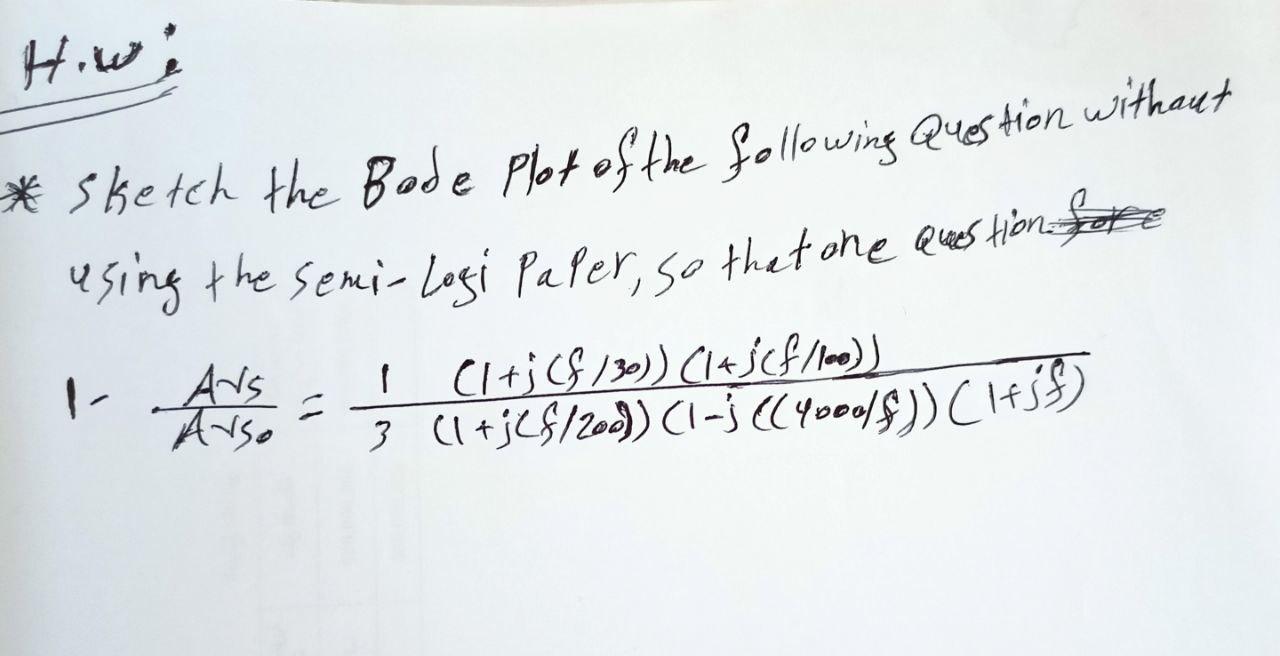 H.w:
* Sketch the Bode Plot of the following Question without
using the semi-Logi Paper, so that one question.
1- Avs/Avso = 1/3 (1+j(f/30))(1+j(f/100)) / (1+j(f/200))(1-j((4000/f))(1+jf)